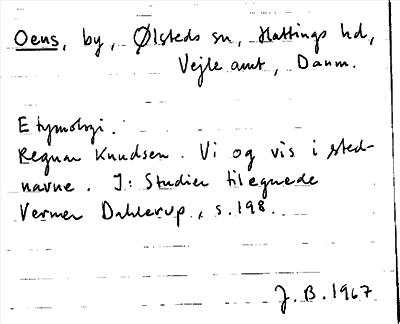 Oens, by, Ølsteds sn, Hattings hd,
Vejle amt, Danm.
Etymologi.
Regnar Knudsen. Vi og vis i sted-
navne. I: Studier tilegnede
Verner Dahlerup, s. 198.
J. B. 1967